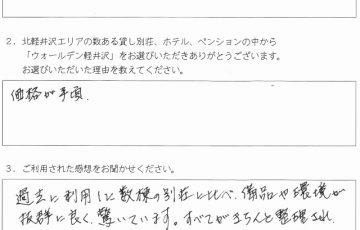 2. 北軽井沢エリアの数ある貸し別荘、ホテル、ペンションの中から
「ウォールデン軽井沢」をお選びいただきありがとうございます。
お選びいただいた理由を教えてください。
価格が手頃.
3. ご利用された感想をお聞かせください。
過去に利用した数棟の別荘に比べ、備品や環境が
抜群に良く、驚いています。すべてがきちんと整理され